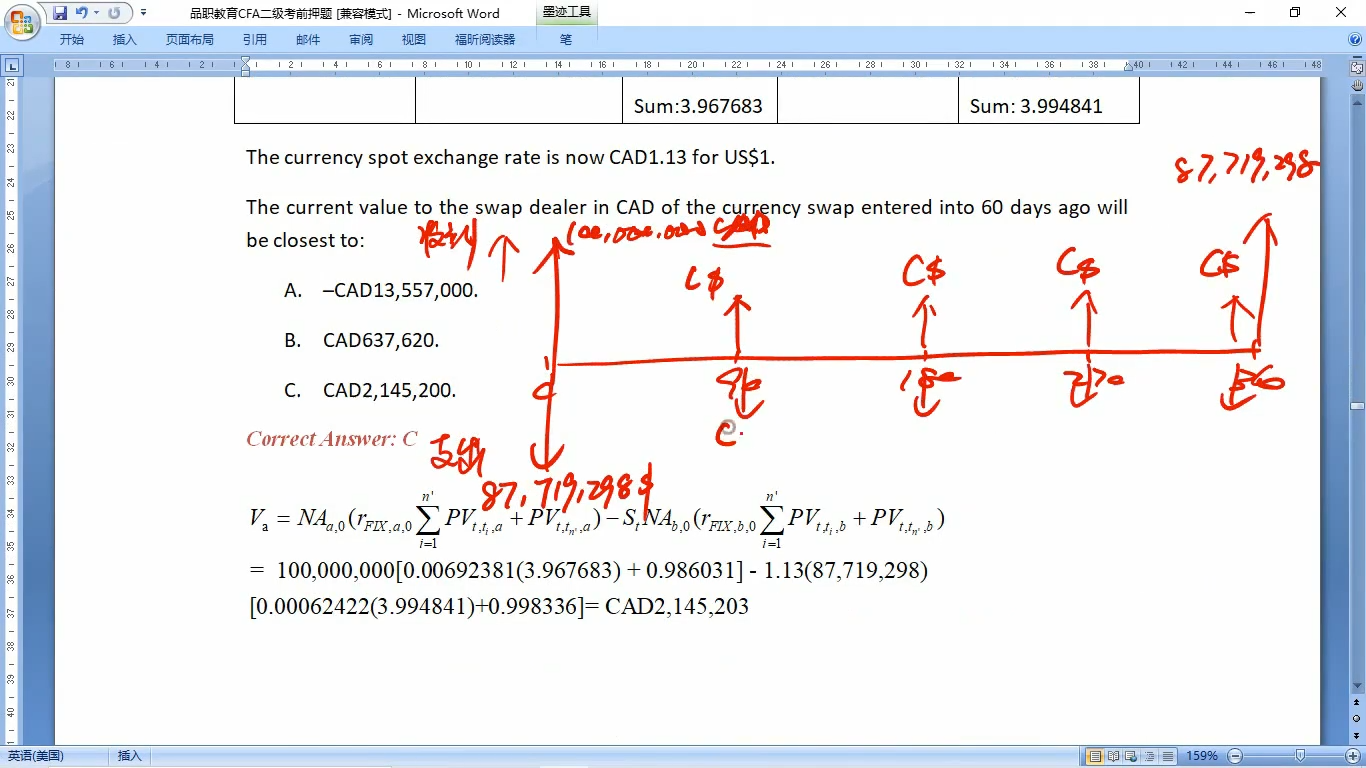 品职教育CFA二级考前押题 [兼容模式] - Microsoft Word
墨迹工具
开始 插入 页面布局 引用 邮件 审阅 视图 福昕阅读器 笔
8 6 4 2 2 4 6 8 10 12 14 16 18 20 22 24 26 28 30 32 34 36 38 40 42 44 46 48
Sum:3.967683 Sum: 3.994841
The currency spot exchange rate is now CAD1.13 for US$1.
87,719,298
The current value to the swap dealer in CAD of the currency swap entered into 60 days ago will
be closest to:
100,000,000 CAD
C$ C$ C$ C$
A. –CAD13,557,000.
B. CAD637,620.
C. CAD2,145,200.
90 180 270 360
Correct Answer: C
支出
87,719,298$
Va = NAa,0(rFIX,a,0 ∑ PVt,ti,a + PVt,tn',a) − StNAb,0(rFIX,b,0 ∑ PVt,ti,b + PVt,tn',b)
= 100,000,000[0.00692381(3.967683) + 0.986031] - 1.13(87,719,298)
[0.00062422(3.994841)+0.998336]= CAD2,145,203
英语(美国) 插入 159%